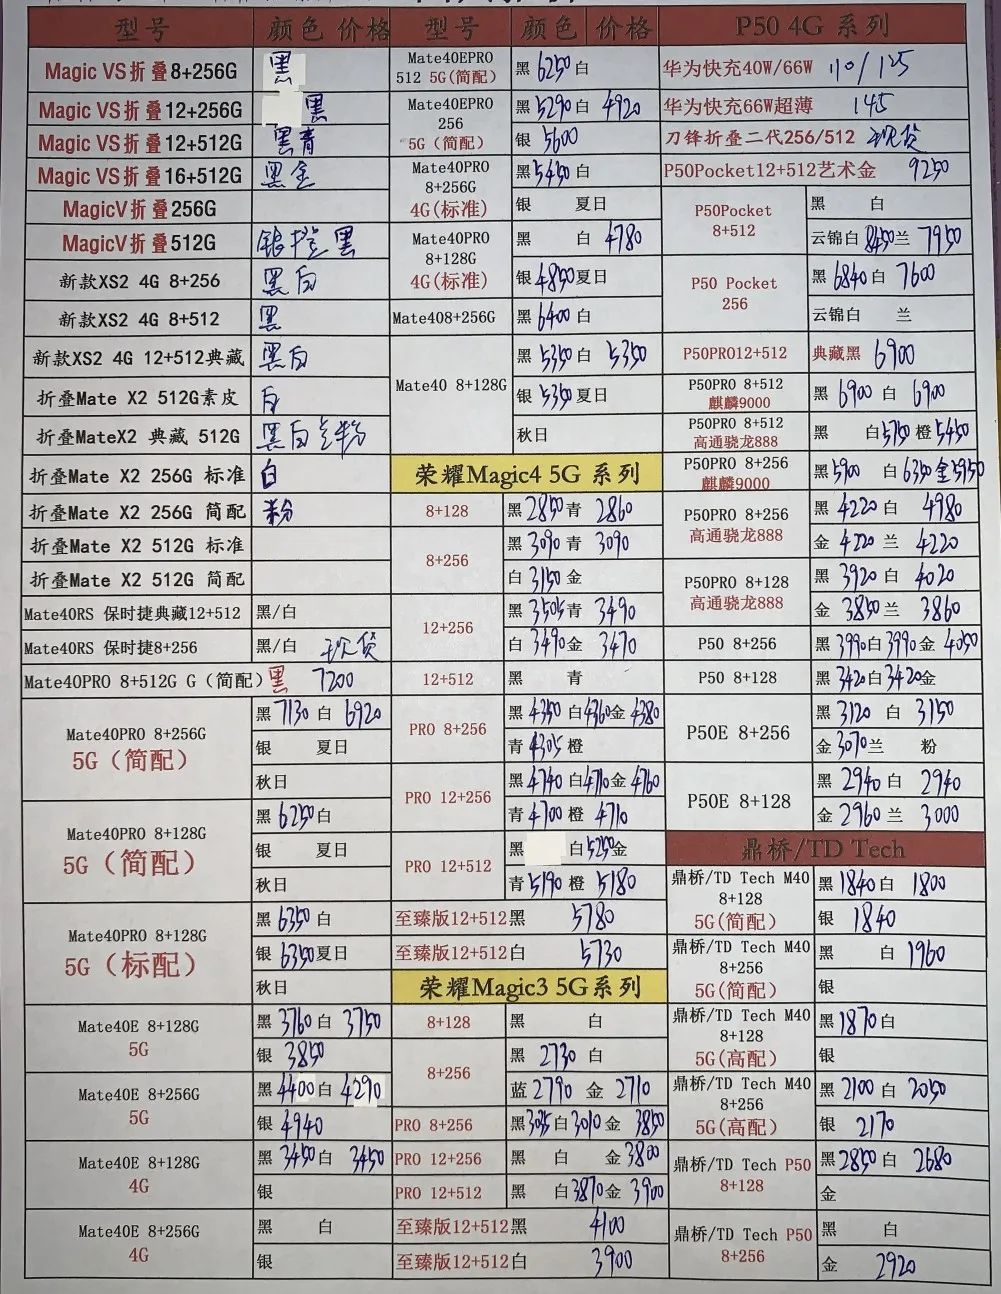 型号 颜色 价格
Magic VS折叠8+256G 黑
Magic VS折叠12+256G 黑
Magic VS折叠12+512G 黑青
Magic VS折叠16+512G 黑金
MagicV折叠256G
MagicV折叠512G 银橙黑
新款XS2 4G 8+256 黑白
新款XS2 4G 8+512 黑
新款XS2 4G 12+512典藏 黑白
折叠Mate X2 512G素皮 白
折叠MateX2 典藏 512G 黑白 粉
折叠Mate X2 256G 标准 白
折叠Mate X2 256G 简配 粉
折叠Mate X2 512G 标准
折叠Mate X2 512G 简配
Mate40RS 保时捷典藏12+512 黑/白
Mate40RS 保时捷8+256 黑/白 现货
Mate40PRO 8+512G G（简配） 黑 7200
Mate40PRO 8+256G
5G（简配）
黑 7130 白 6920
银 夏日
秋日
Mate40PRO 8+128G
5G（简配）
黑 6250 白
银 夏日
秋日
Mate40PRO 8+128G
5G（标配）
黑 6350 白
银 6350 夏日
秋日
Mate40E 8+128G
5G
黑 3760 白 3750
银 3850
Mate40E 8+256G
5G
黑 4400 白 4290
银 4940
Mate40E 8+128G
4G
黑 3450 白 3450
银
Mate40E 8+256G
4G
黑 白
银
型号 颜色 价格
Mate40EPRO
512 5G(简配)
黑 6250 白
Mate40EPRO
256
5G（简配）
黑 5290 白 4920
银 5600
Mate40PRO
8+256G
4G(标准)
黑 5450 白
银 夏日
Mate40PRO
8+128G
4G(标准)
黑 白 4780
银 4850 夏日
Mate408+256G 黑 6400 白
Mate40 8+128G
黑 5350 白 5350
银 5350 夏日
秋日
荣耀Magic4 5G 系列
8+128 黑 2850 青 2860
8+256
黑 3090 青 3090
白 3150 金
12+256
黑 3505 青 3490
白 3490 金 3470
12+512 黑 青
PRO 8+256
黑 4350 白 4360 金 4380
青 4305 橙
PRO 12+256
黑 4740 白 4710 金 4760
青 4700 橙 4710
PRO 12+512
黑 白 5250 金
青 5190 橙 5180
至臻版12+512黑 5780
至臻版12+512白 5730
荣耀Magic3 5G系列
8+128 黑 白
8+256
黑 2730 白
蓝 2790 金 2710
PRO 8+256 黑 3035 白 3010 金 3850
PRO 12+256 黑 白 金 3800
PRO 12+512 黑 白 3870 金 3900
至臻版12+512黑 4100
至臻版12+512白 3900
P50 4G 系列
华为快充40W/66W 110/125
华为快充66W超薄 145
刀锋折叠二代256/512 现货
P50Pocket12+512艺术金 9250
P50Pocket
8+512
黑 白
云锦白 8450 兰 7950
P50 Pocket
256
黑 6840 白 7600
云锦白 兰
P50PRO12+512 典藏黑 6900
P50PRO 8+512
麒麟9000
黑 6900 白 6900
P50PRO 8+512
高通骁龙888
黑 白 5750 橙 5450
P50PRO 8+256
麒麟9000
黑 5900 白 6350 金 5950
P50PRO 8+256
高通骁龙888
黑 4220 白 4980
金 4220 兰 4220
P50PRO 8+128
高通骁龙888
黑 3920 白 4020
金 3850 兰 3860
P50 8+256 黑 3990 白 3990 金 4050
P50 8+128 黑 3420 白 3420 金
P50E 8+256
黑 3120 白 3150
金 3070 兰 粉
P50E 8+128
黑 2940 白 2940
金 2960 兰 3000
鼎桥/TD Tech
鼎桥/TD Tech M40
8+128
5G(简配)
黑 1840 白 1800
银 1840
鼎桥/TD Tech M40
8+256
5G(简配)
黑 白 1960
银
鼎桥/TD Tech M40
8+128
5G(高配)
黑 1870 白
银
鼎桥/TD Tech M40
8+256
5G(高配)
黑 2100 白 2050
银 2170
鼎桥/TD Tech P50
8+128
黑 2850 白 2680
金
鼎桥/TD Tech P50
8+256
黑 白
金 2920